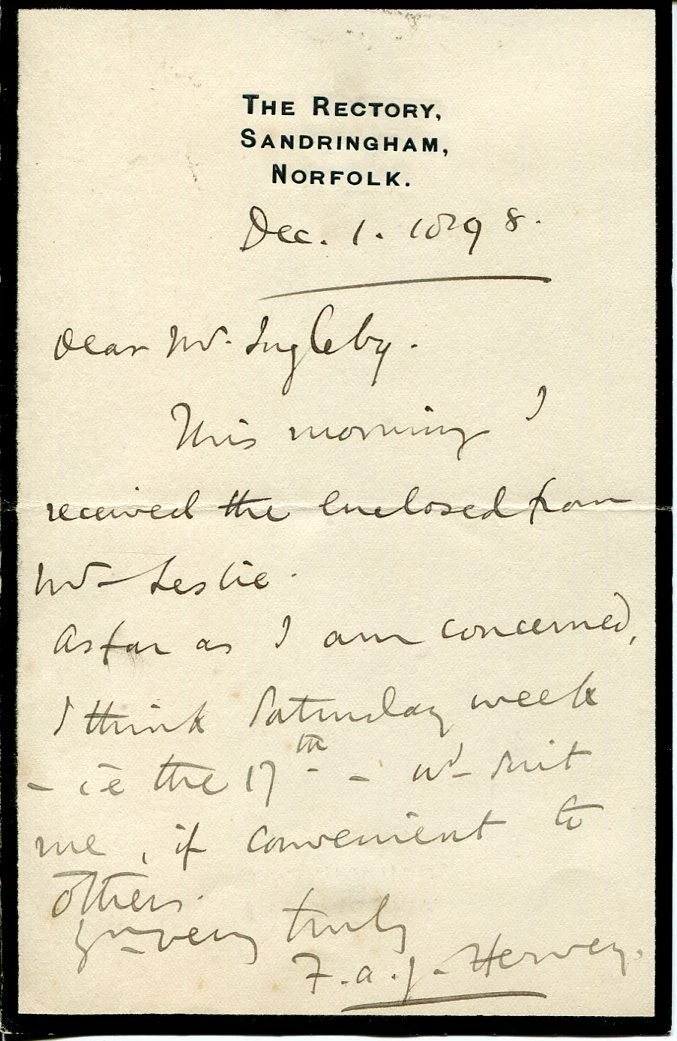 THE RECTORY,
SANDRINGHAM,
NORFOLK.
Dec. 1. 1898.
Dear Mr. Ingleby.
This morning I
received the enclosed from
Mr Leslie.
As far as I am concerned,
I think Saturday week
- ie the 17th - wd suit
me, if convenient to
others.
Yrs very truly
F.A.J. Hervey.